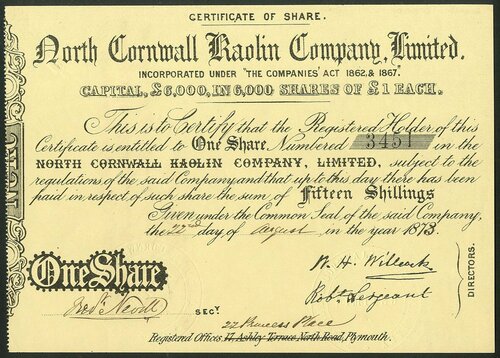 CERTIFICATE OF SHARE.
North Cornwall Kaolin Company, Limited.
INCORPORATED UNDER "THE COMPANIES' ACT 1862, & 1867."
CAPITAL, £6,000, IN 6,000 SHARES OF £1 EACH.
This is to Certify that the Registered Holder of this
Certificate is entitled to One Share, Numbered 3451 in the
NORTH CORNWALL KAOLIN COMPANY, LIMITED, subject to the
regulations of the said Company and that up to this day there has been
paid in respect of such share the sum of Fifteen Shillings
Given under the Common Seal of the said Company,
the 22nd day of August in the year 1873.
One Share
W. H. Willcocks
Robt. Sergeant
DIRECTORS.
SECY.
22 Princess Place
Registered Offices, 17, Ashley Terrace North Road, Plymouth.